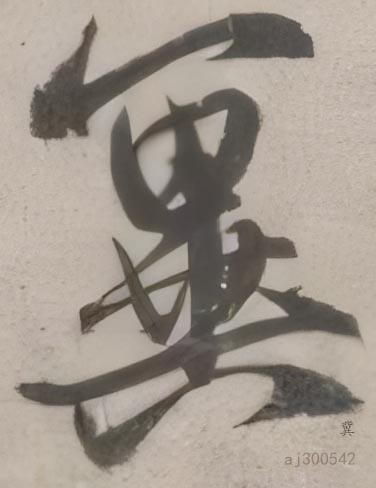 冀
冀
aj300542